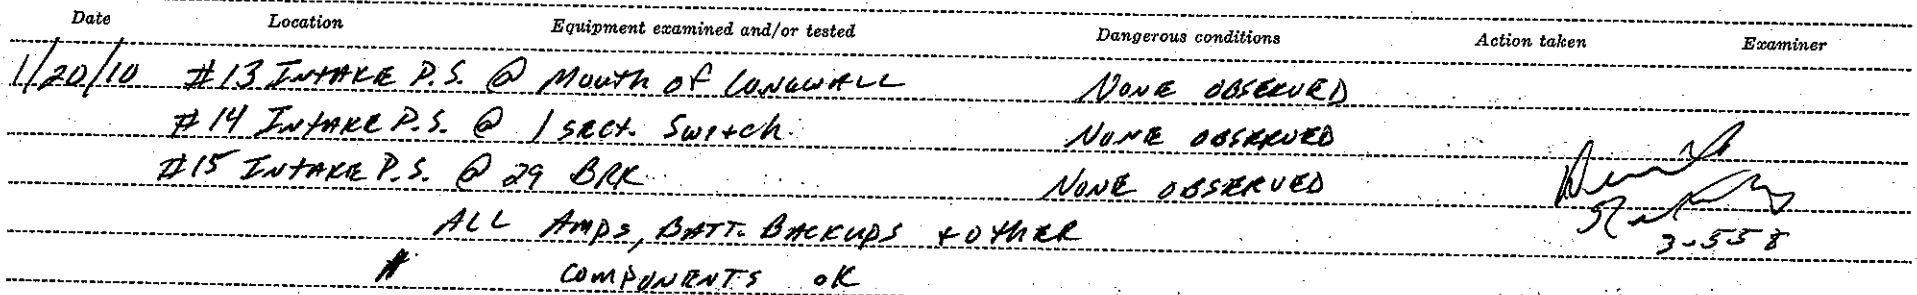 Date Location Equipment examined and/or tested Dangerous conditions Action taken Examiner
1/20/10 #13 INTAKE P.S. @ Mouth of LONGWALL NONE OBSERVED
#14 INTAKE P.S. @ 1 SECT. Switch NONE OBSERVED
#15 INTAKE P.S. @ 29 BRK NONE OBSERVED
ALL Amps, BATT. BACKUPS + OTHER
3-558
COMPONENTS OK